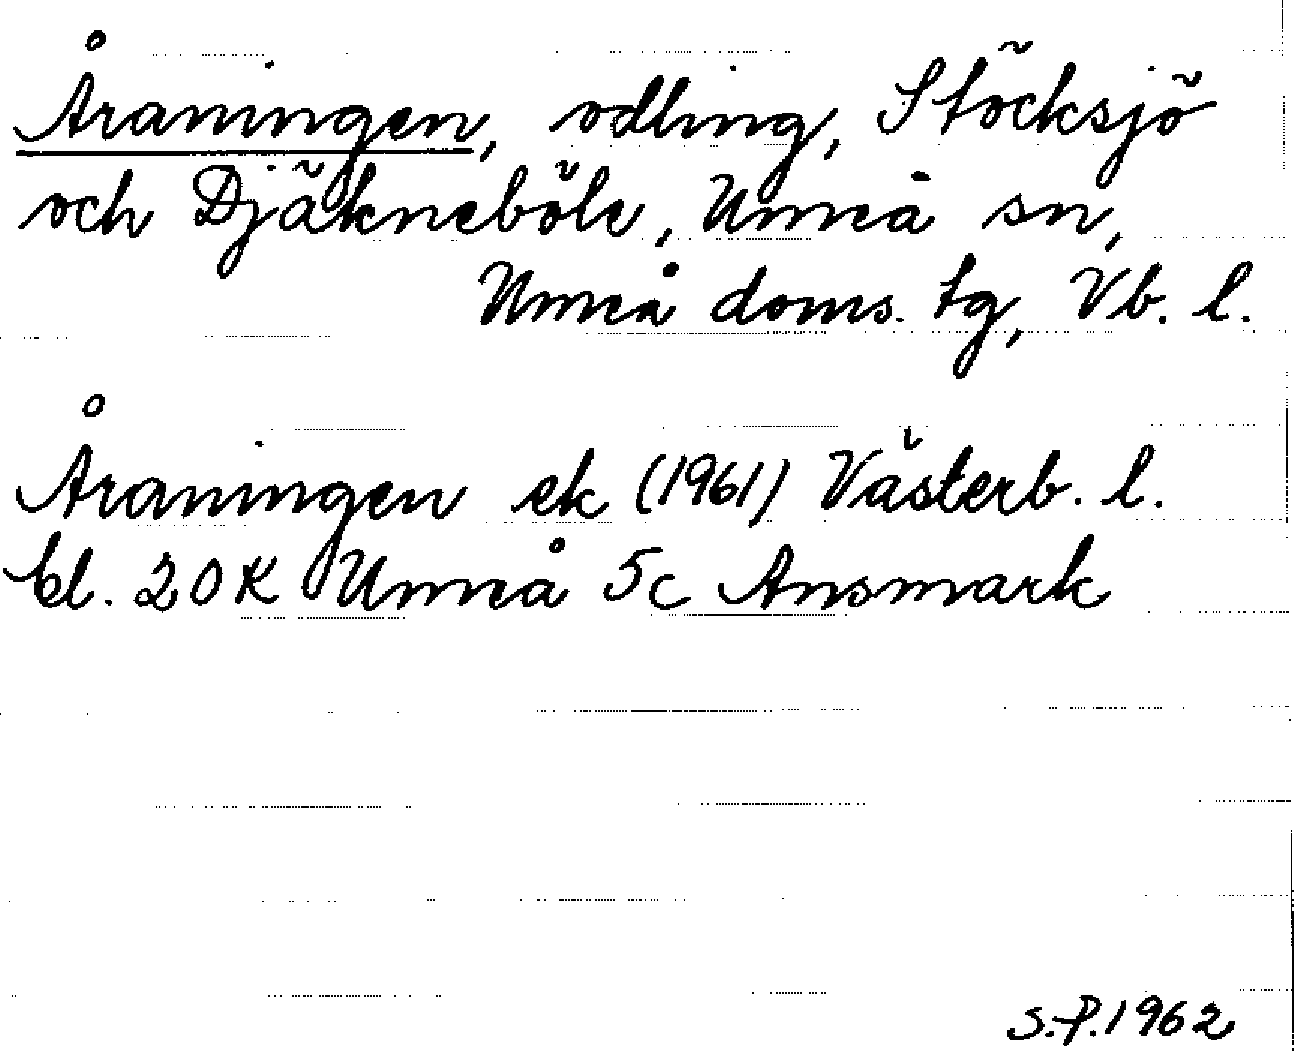 Åraningen, odling, Stöcksjö
och Djäkneböle, Umeå sn,
Umeå doms. tg, Vb. l.
Åraningen ek (1961) Västerb. l.
bl. 20 K Umeå 5c Ansmark
S.P. 1962